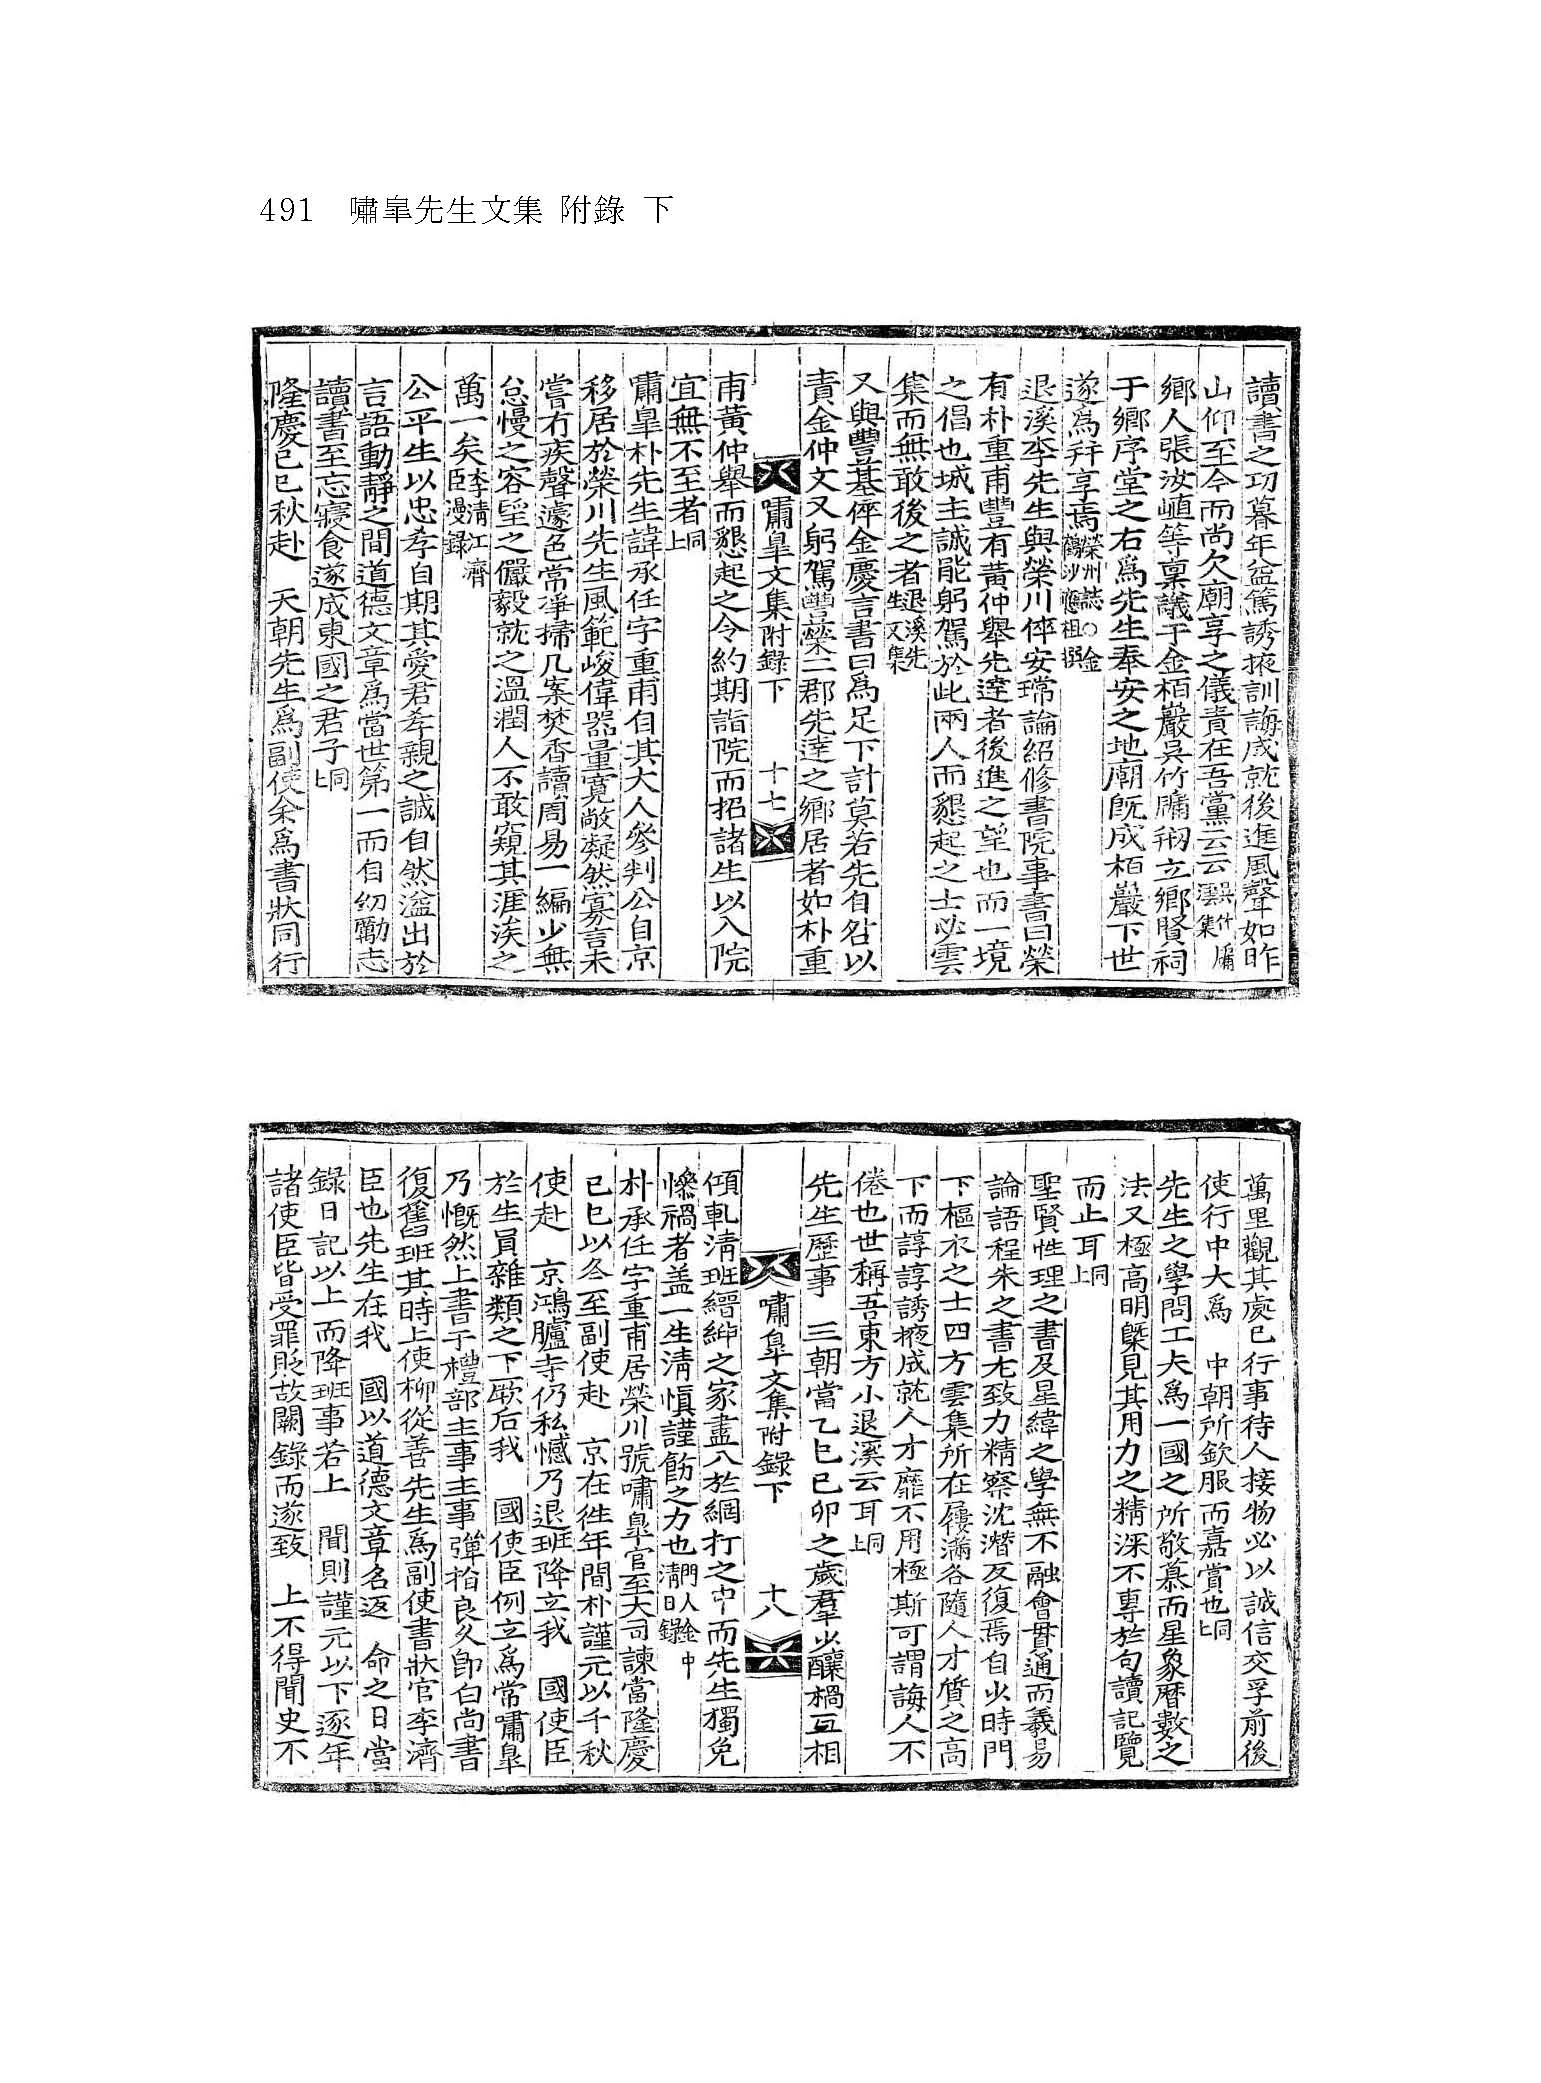 491 嘯皐先生文集 附錄 下
讀書之功暮年益篤誘掖訓誨成就後進風聲如昨
山仰至今而尚欠廟享之儀責在吾黨云云吳竹牖溪集
鄕人張汝㯙等稟議于金栢巖吳竹牖刱立鄕賢祠
于鄕序堂之右爲先生奉安之地廟旣成栢巖下世
遂爲幷享焉榮州誌○金鶴沙應祖撰
退溪李先生與榮川倅安瑺論紹修書院事書曰榮
有朴重甫豐有黃仲擧先達者後進之望也而一境
之倡也城主誠能躬駕於此兩人而懇起之士必雲
集而無敢後之者退溪先生文集
又與豐基倅金慶言書曰爲足下計莫若先自咎以
責金仲文又躬駕豐榮二郡先達之鄕居者如朴重
嘯皐文集附錄下 十七
甫黃仲擧而懇起之令約期詣院而招諸生以入院
宜無不至者上同
嘯皐朴先生諱承任字重甫自其大人參判公自京
移居於榮川先生風範峻偉器量寬敞凝然寡言未
嘗有疾聲遽色常淨掃几案焚香讀周易一編少無
怠慢之容望之儼毅就之溫潤人不敢窺其涯涘之
萬一矣李淸江濟臣漫錄
公平生以忠孝自期其愛君孝親之誠自然溢出於
言語動靜之間道德文章爲當世第一而自幼勵志
讀書至忘寢食遂成東國之君子上同
隆慶己巳秋赴 天朝先生爲副使余爲書狀同行
萬里觀其處己行事待人接物必以誠信交孚前後
使行中大爲 中朝所欽服而嘉賞也上同
先生之學問工夫爲一國之所敬慕而星象曆數之
法又極高明槩見其用力之精深不專於句讀記覽
而止耳上同
聖賢性理之書及星緯之學無不融會貫通而羲易
論語程朱之書尤致力精察沈潛反復焉自少時門
下樞衣之士四方雲集所在屨滿各隨人才質之高
下而諄諄誘掖成就人才靡不用極斯可謂誨人不
倦也世稱吾東方小退溪云耳上同
先生歷事 三朝當乙巳己卯之歲羣少釀禍互相
嘯皐文集附錄下 十八
傾軋淸班縉紳之家盡入於網打之中而先生獨免
慘禍者盖一生淸愼謹飭之力也門人金中淸日錄
朴承任字重甫居榮川號嘯皐官至大司諫當隆慶
己巳以冬至副使赴 京在徃年間朴謹元以千秋
使赴 京鴻臚寺仍私憾乃退班降立我 國使臣
於生員雜類之下厥后我 國使臣例立爲常嘯皐
乃慨然上書于禮部主事主事彈指良久卽白尙書
復舊班其時上使柳從善先生爲副使書狀官李濟
臣也先生在我 國以道德文章名返 命之日當
錄日記以上而降班事若上 聞則謹元以下逐年
諸使臣皆受罪貶故闕錄而遂致 上不得聞史不